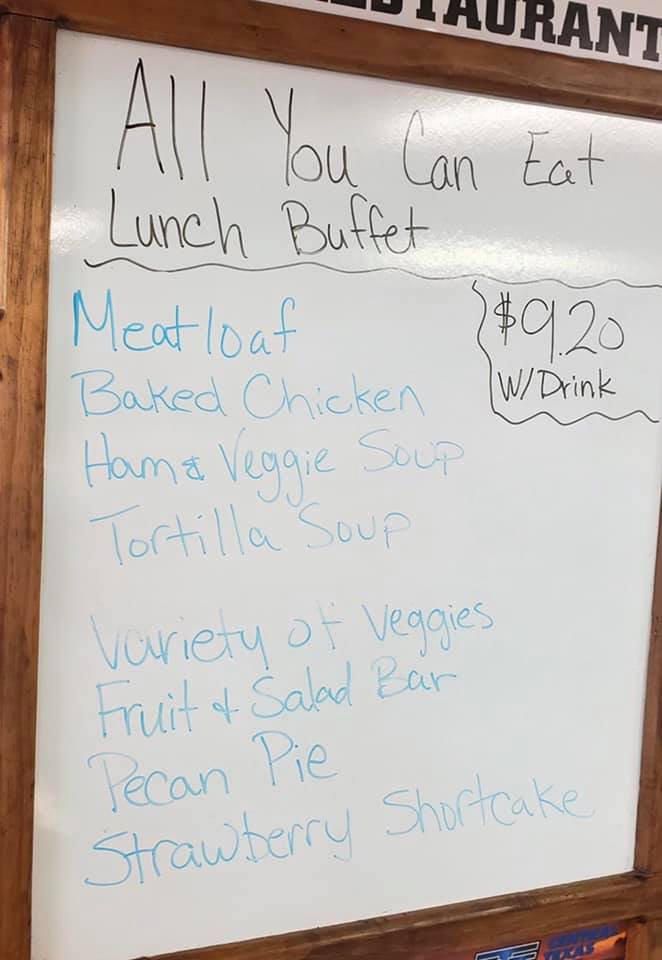 RESTAURANT
All You Can Eat
Lunch Buffet
$9.20
W/Drink
Meatloaf
Baked Chicken
Ham & Veggie Soup
Tortilla Soup
Variety of Veggies
Fruit & Salad Bar
Pecan Pie
Strawberry Shortcake
CENTRAL
TEXAS